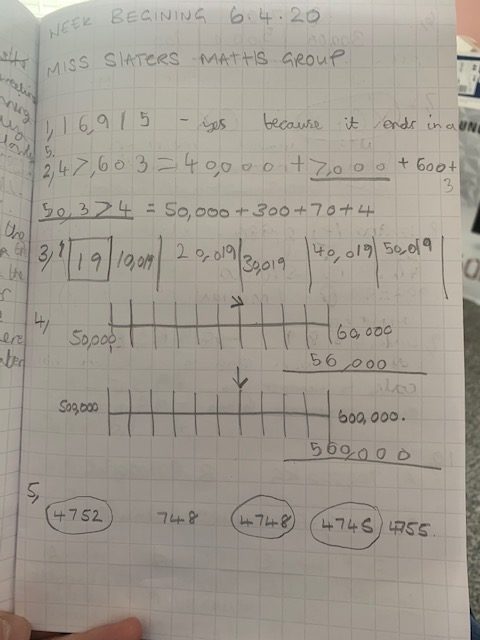 WEEK BEGINING 6.4.20
MISS SlATERS MATHS GROUP
1, 16,915 - yes because it ends in a
5.
2, 47,603 = 40,000 + 7,000 + 600+
3
50,374 = 50,000+300+70+4
3, 19 10,019 20,019 30,019 40,019 50,019
4,
50,000 60,000
56,000
500,000 600,000.
560,000
5,
4752 748 4748 4746 4755.